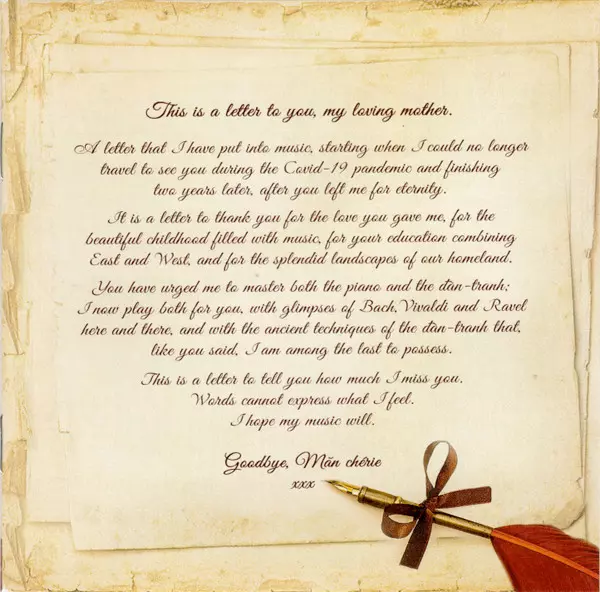 This is a letter to you, my loving mother.
A letter that I have put into music, starting when I could no longer
travel to see you during the Covid-19 pandemic and finishing
two years later, after you left me for eternity.
It is a letter to thank you for the love you gave me, for the
beautiful childhood filled with music, for your education combining
East and West, and for the splendid landscapes of our homeland.
You have urged me to master both the piano and the đàn-tranh;
I now play both for you, with glimpses of Bach, Vivaldi and Ravel
here and there, and with the ancient techniques of the đàn-tranh that,
like you said, I am among the last to possess.
This is a letter to tell you how much I miss you.
Words cannot express what I feel.
I hope my music will.
Goodbye, Măn chérie
xxx